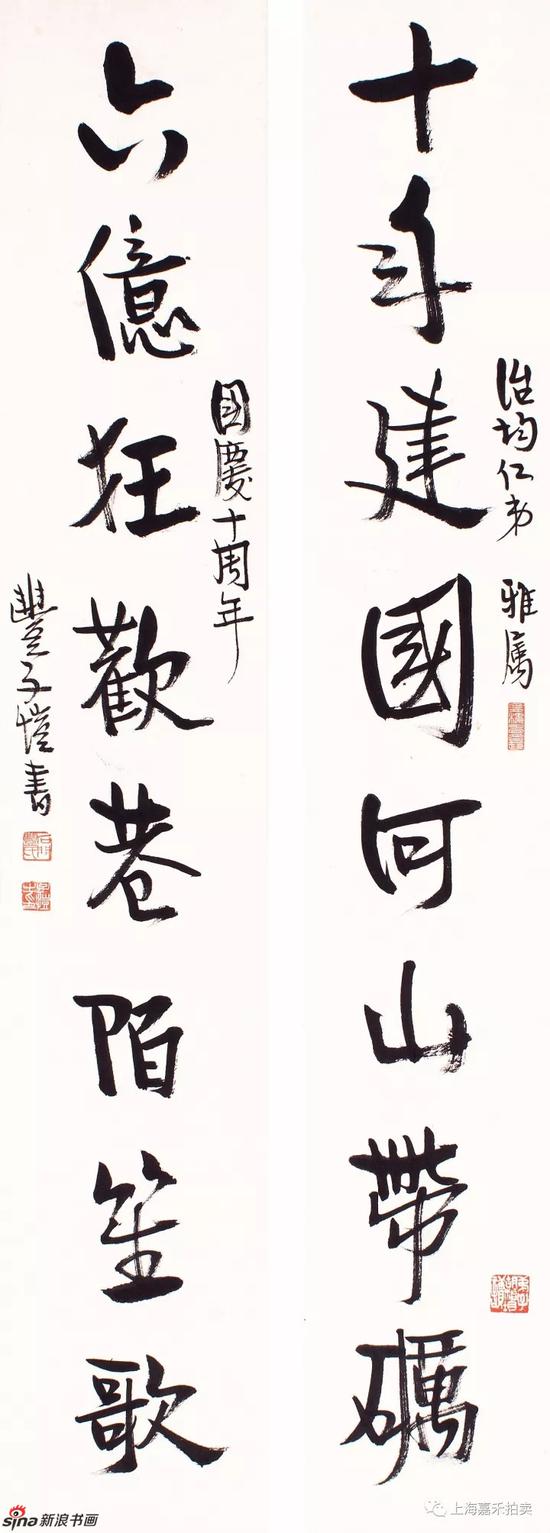 治均仁弟 雅屬
十年建國河山帶礪
國慶十周年
六億狂歡巷陌笙歌
豐子愷書
sina新浪书画
上海嘉禾拍卖